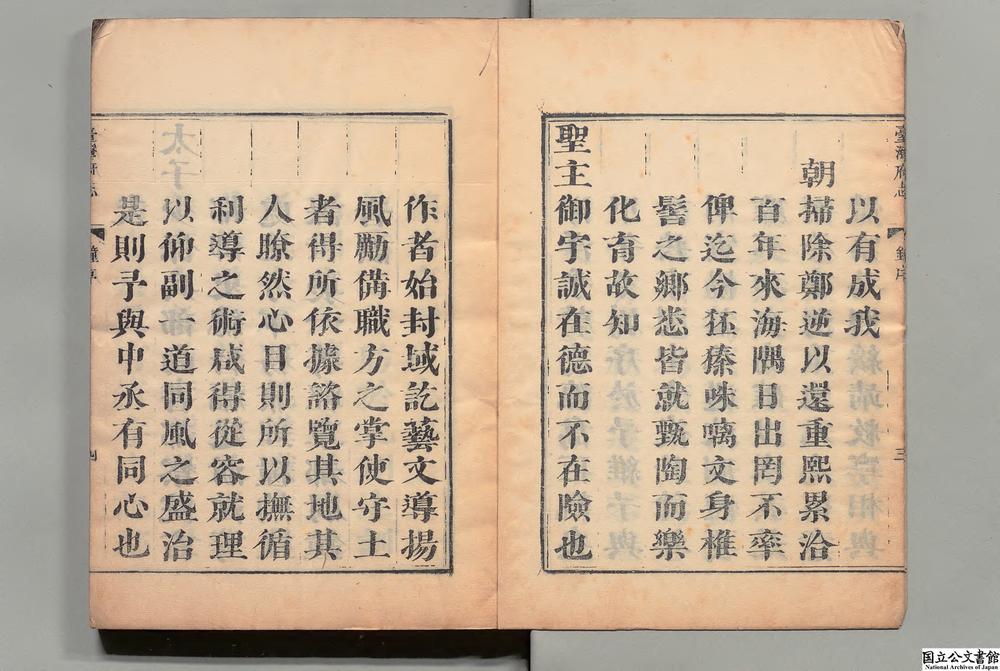 臺灣府志 鐘序 三
以有成我
朝掃除鄭逆以還重熙累洽
百年來海隅日出罔不率
俾迄今狉獉咮文身椎
髻之鄉悉皆就甄陶而樂
化育故知
聖主御宇誠在德而不在險也
作者始封域訖藝文導揚
風勵備職方之掌使守土
者得所依據諮覽其地其
人瞭然心目則所以撫循
利導之術咸得從容就理
以仰副 道同風之盛治
是則予與中丞有同心也
臺灣府志 鐘序
国立公文書館
National Archives of Japan